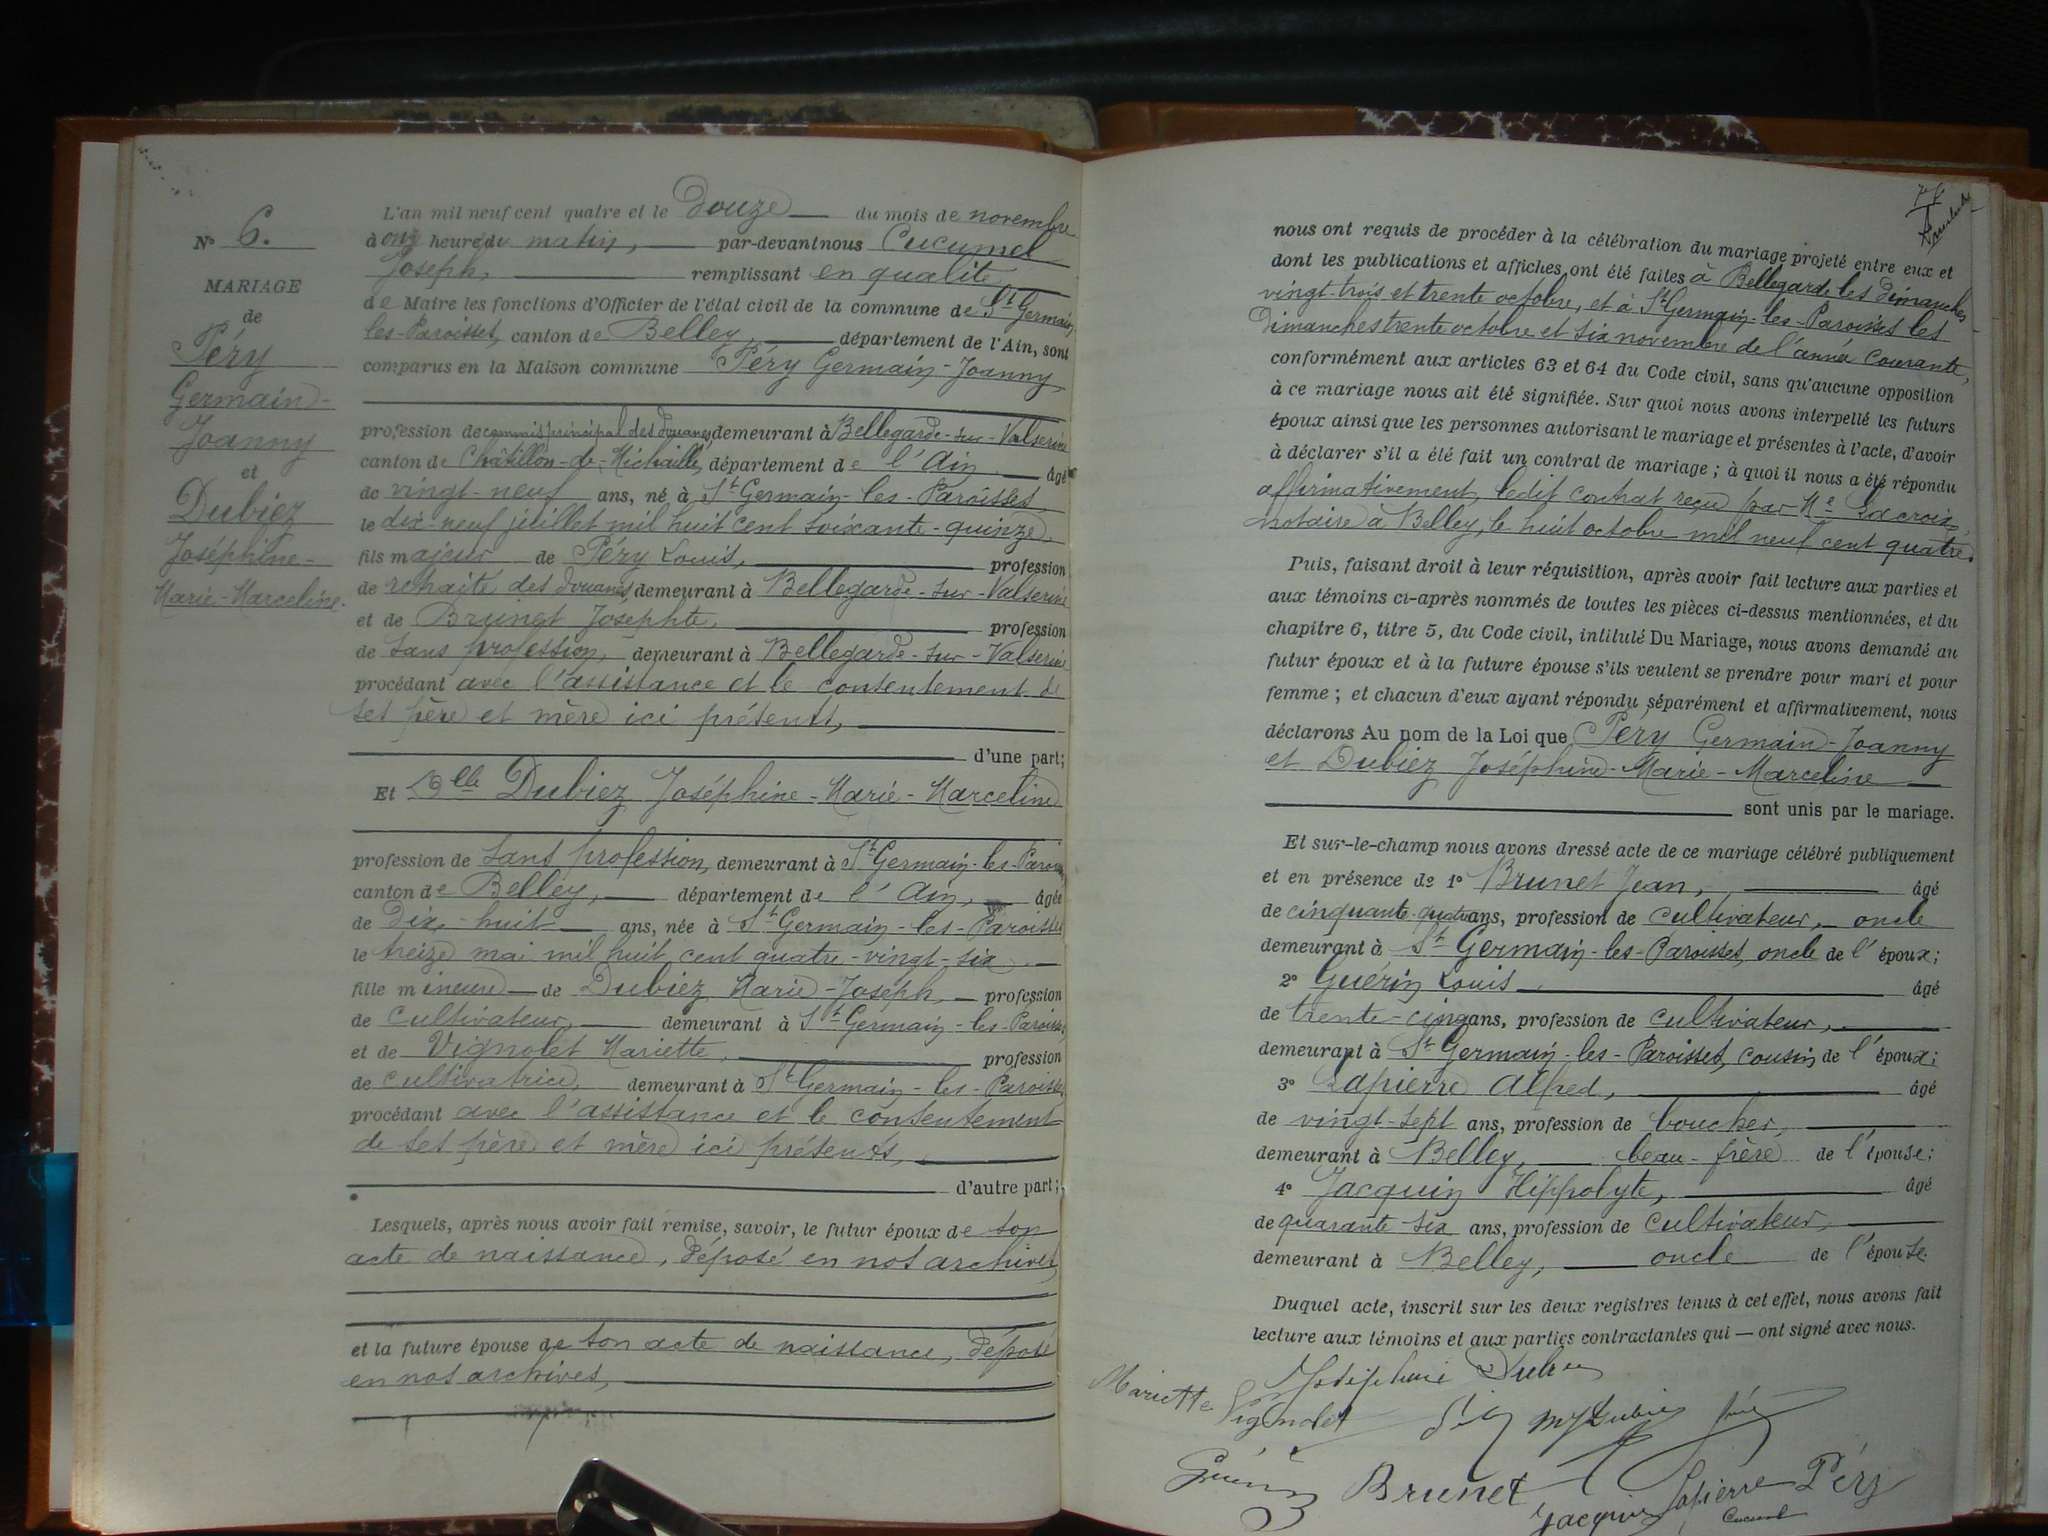 N° 6.
MARIAGE
de
Péry
Germain-
Joanny
et
Dubiez
Joséphine-
Marie-Marceline.
L'an mil neuf cent quatre et le Douze du mois de novembre
à onze heures du matin, par-devant nous Cucumel
Joseph, remplissant en qualité
de Maire les fonctions d'Officier de l'état civil de la commune de St Germain-
les-Paroisses, canton de Belley, département de l'Ain, sont
comparus en la Maison commune Péry Germain-Joanny
profession de commis principal des Douanes, demeurant à Bellegarde-sur-Valserine
canton de Châtillon-de-Michaille, département de l'Ain âgé
de vingt-neuf ans, né à St Germain-les-Paroisses
le dix-neuf juillet mil huit cent soixante-quinze.
fils majeur de Péry Louis, profession
de retraité des Douanes, demeurant à Bellegarde-sur-Valserine
et de Brunet Josephte, profession
de sans profession, demeurant à Bellegarde-sur-Valserine
procédant avec l'assistance et le consentement de
ses père et mère ici présents,
d'une part;
Et Dlle Dubiez Joséphine-Marie-Marceline
profession de sans profession, demeurant à St Germain-les-Paroisses
canton de Belley, département de l'Ain, âgée
de Dix-huit ans, née à St Germain-les-Paroisses
le treize mai mil huit cent quatre-vingt-six
fille mineure de Dubiez Marie-Joseph, profession
de cultivateur, demeurant à St Germain-les-Paroisses,
et de Vignolet Mariette, profession
de cultivatrice, demeurant à St Germain-les-Paroisses,
procédant avec l'assistance et le consentement
de ses père et mère ici présents,
d'autre part;
Lesquels, après nous avoir fait remise, savoir, le futur époux de son
acte de naissance, déposé en nos archives,
et la future épouse de son acte de naissance, déposé
en nos archives,
nous ont requis de procéder à la célébration du mariage projeté entre eux et
dont les publications et affiches ont été faites à Bellegarde les dimanches
vingt-trois et trente octobre, et à St Germain-les-Paroisses les
Dimanches trente octobre et six novembre de l'année courante,
conformément aux articles 63 et 64 du Code civil, sans qu'aucune opposition
à ce mariage nous ait été signifiée. Sur quoi nous avons interpellé les futurs
époux ainsi que les personnes autorisant le mariage et présentes à l'acte, d'avoir
à déclarer s'il a été fait un contrat de mariage; à quoi il nous a été répondu
affirmativement, ledit contrat reçu par Me Lacroix,
notaire à Belley, le huit octobre mil neuf cent quatre.
Puis, faisant droit à leur réquisition, après avoir fait lecture aux parties et
aux témoins ci-après nommés de toutes les pièces ci-dessus mentionnées, et du
chapitre 6, titre 5, du Code civil, intitulé Du Mariage, nous avons demandé au
futur époux et à la future épouse s'ils veulent se prendre pour mari et pour
femme; et chacun d'eux ayant répondu séparément et affirmativement, nous
déclarons Au nom de la Loi que Péry Germain-Joanny
et Dubiez Joséphine-Marie-Marceline
sont unis par le mariage.
Et sur-le-champ nous avons dressé acte de ce mariage célébré publiquement
et en présence de 1° Brunet Jean, âgé
de cinquante-quatre ans, profession de cultivateur, oncle
demeurant à St Germain-les-Paroisses, oncle de l'époux;
2° Guérin Louis âgé
de trente-cinq ans, profession de cultivateur,
demeurant à St Germain-les-Paroisses, cousin de l'époux;
3° Lapierre Alfred, âgé
de vingt-sept ans, profession de boucher,
demeurant à Belley, beau-frère de l'épouse;
4° Jacquin Hippolyte, âgé
de quarante-six ans, profession de cultivateur,
demeurant à Belley, oncle de l'épouse.
Duquel acte, inscrit sur les deux registres tenus à cet effet, nous avons fait
lecture aux témoins et aux parties contractantes qui — ont signé avec nous.
Joséphine Dubiez
Mariette Vignolet
Guérin Brunet Jacquin Lapierre Péry
Cucumel